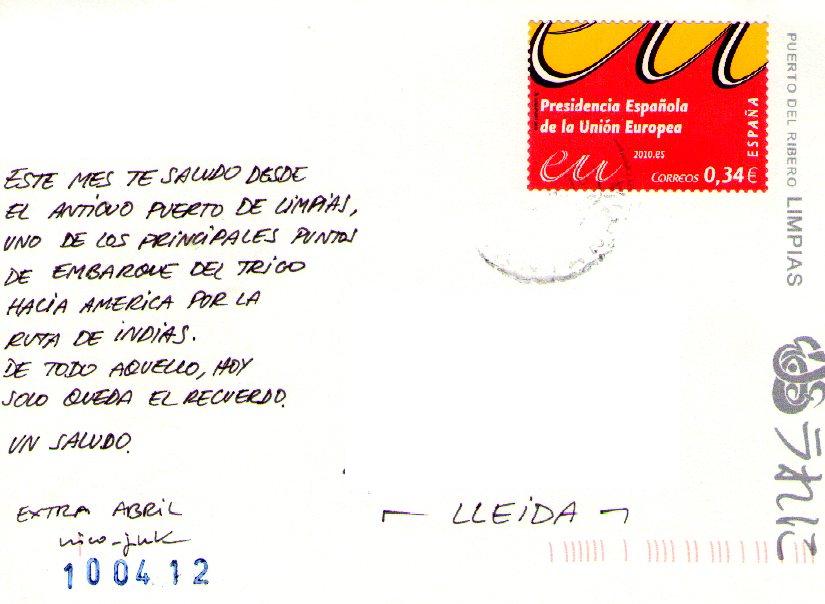 ESTE MES TE SALUDO DESDE
EL ANTIGUO PUERTO DE LIMPIAS,
UNO DE LOS PRINCIPALES PUNTOS
DE EMBARQUE DEL TRIGO
HACIA AMERICA POR LA
RUTA DE INDIAS.
DE TODO AQUELLO, HOY
SOLO QUEDA EL RECUERDO.
UN SALUDO.
EXTRA ABRIL
nico-juk
100412
eu
Presidencia Española
de la Unión Europea
eu 2010.es
CORREOS 0,34€
ESPAÑA
PUERTO DEL RIBERO LIMPIAS
LLEIDA